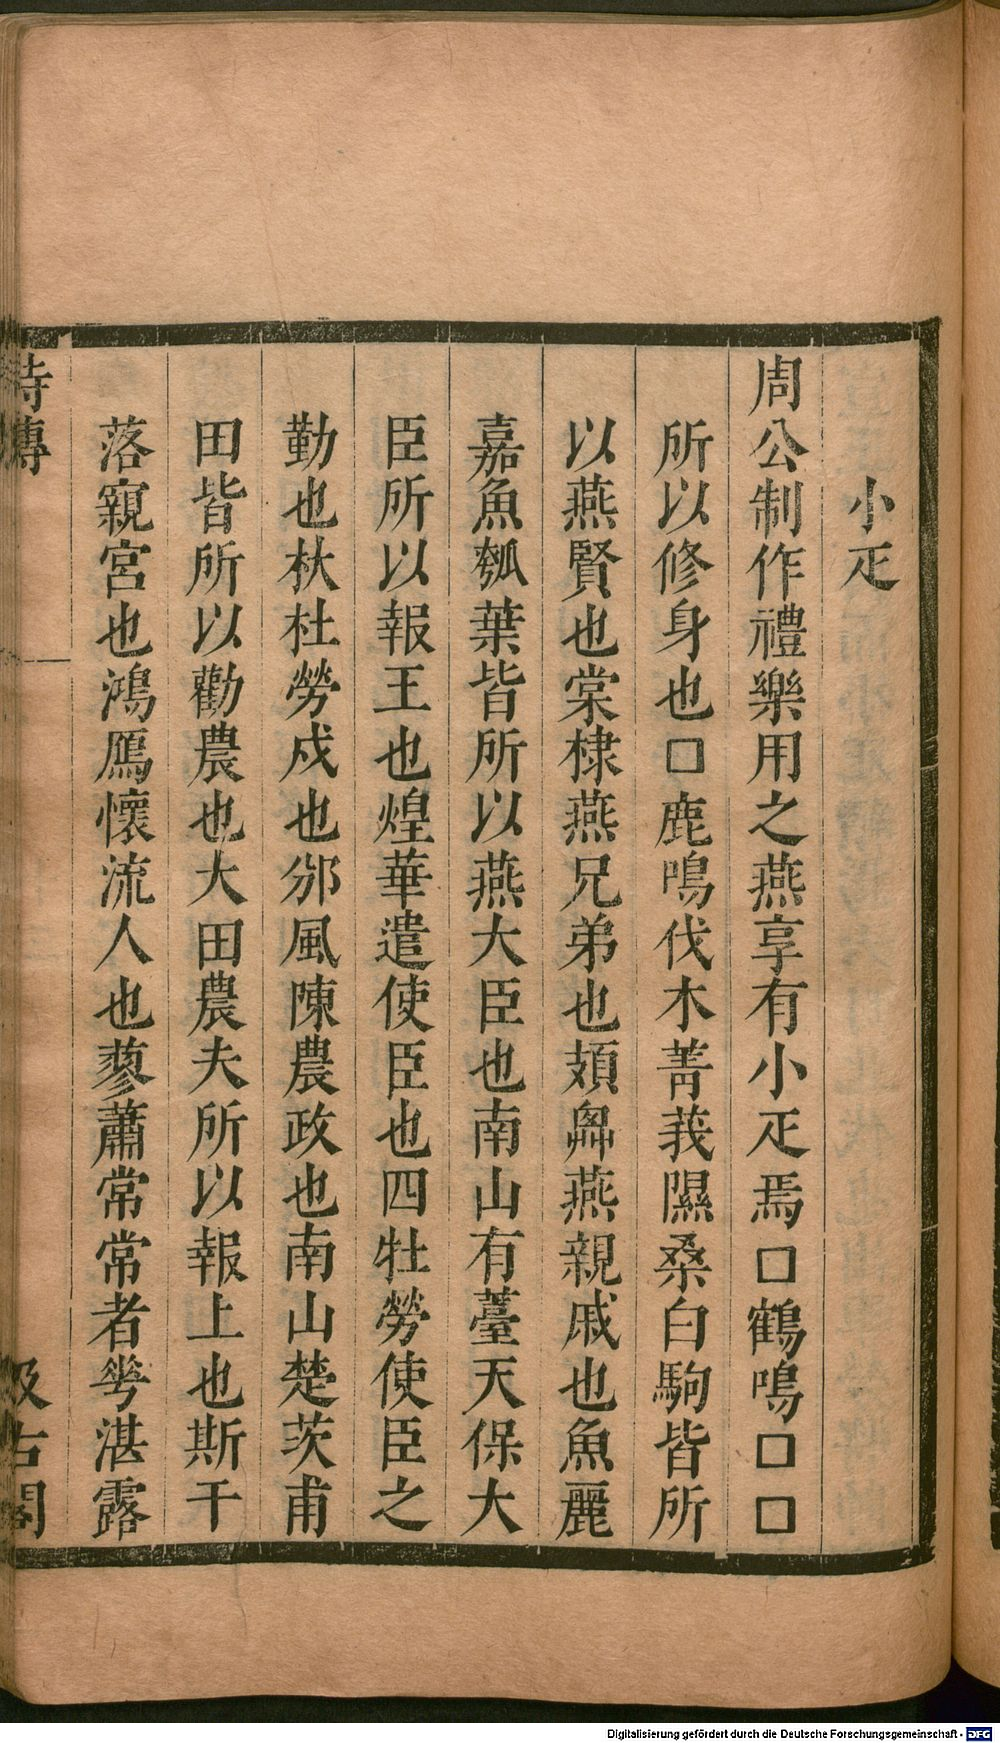 小疋
周公制作禮樂用之燕享有小疋焉囗鶴鳴囗囗
所以修身也囗鹿鳴伐木菁莪隰桑白駒皆所
以燕賢也棠棣燕兄弟也頍弁燕親戚也魚麗
嘉魚瓠葉皆所以燕大臣也南山有薹天保大
臣所以報王也煌華遣使臣也四牡勞使臣之
勤也杕杜勞戍也邠風陳農政也南山楚茨甫
田皆所以勸農也大田農夫所以報上也斯干
落寴宮也鴻鴈懷流人也蓼蕭常常者芛湛露
詩傳
汲古閣
Digitalisierung gefördert durch die Deutsche Forschungsgemeinschaft - DFG